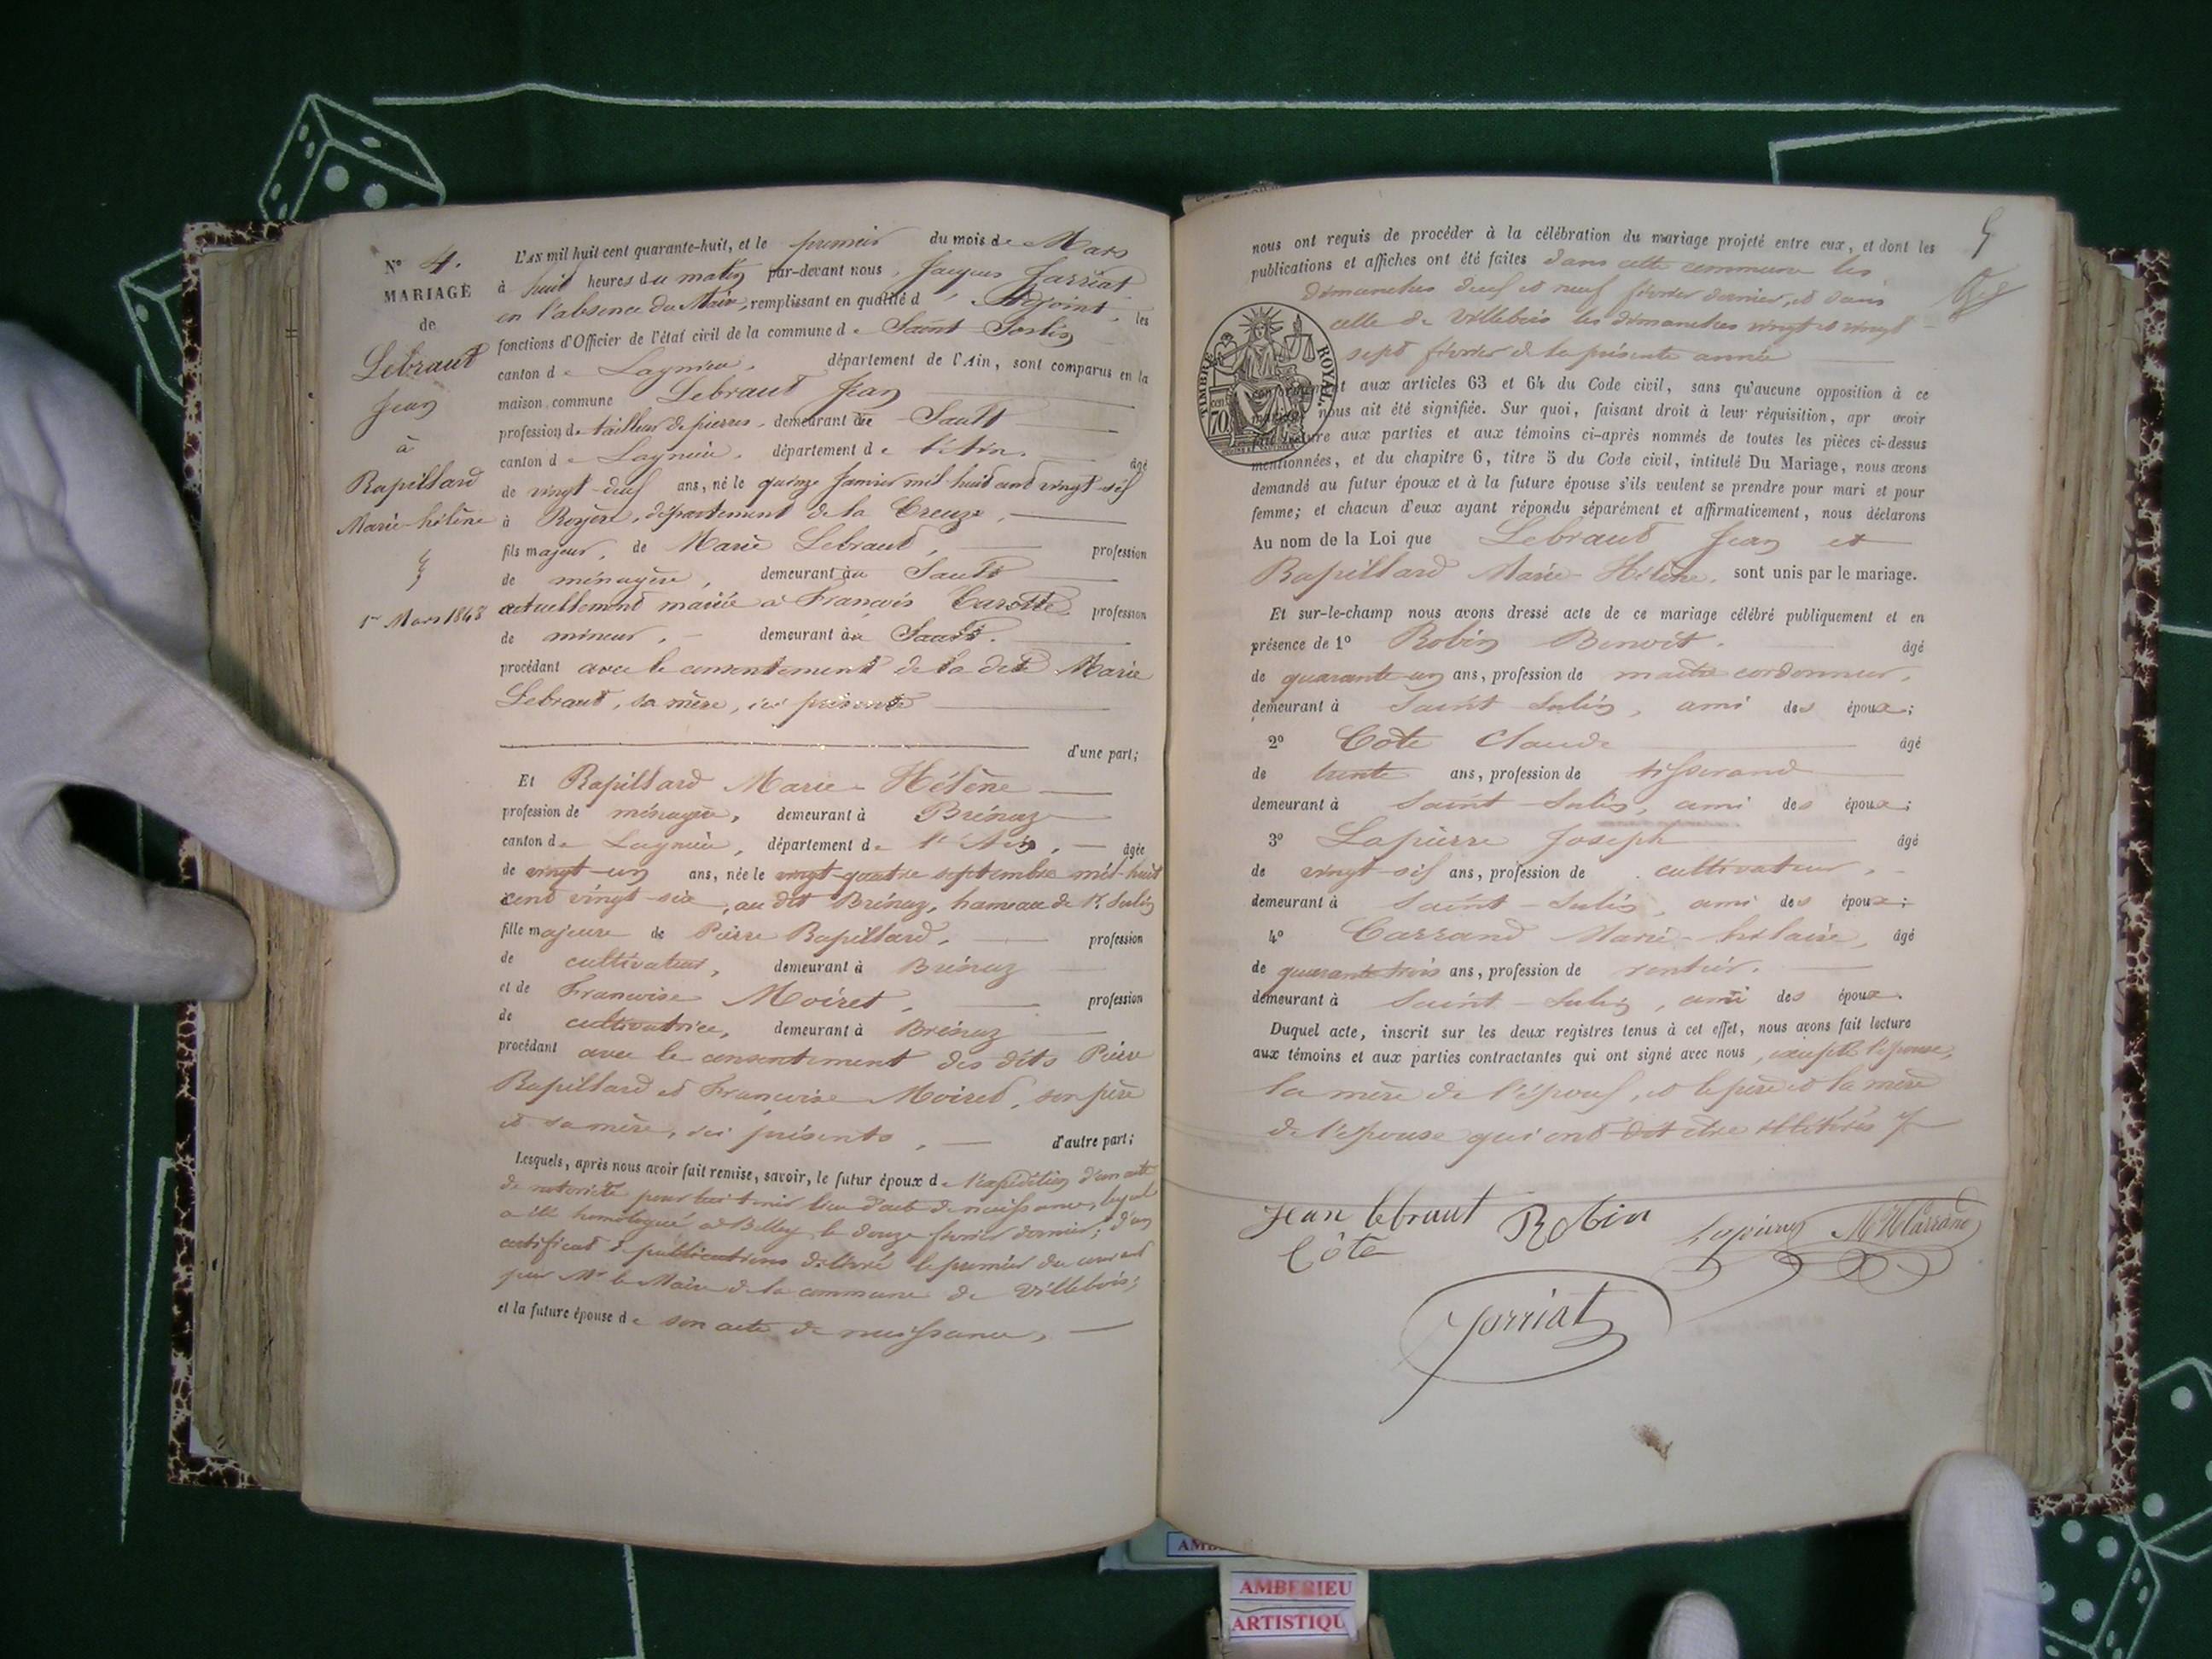 N° 4.
MARIAGE
de
Lebraut
Jean
à
Rapillard
Marie-hélène
1er Mars 1848
L'AN mil huit cent quarante-huit, et le premier du mois de Mars
à huit heures du matin par-devant nous, Jacques Jarriat
en l'absence du Maire, remplissant en qualité d'Adjoint, les
fonctions d'Officier de l'état civil de la commune de Saint Sorlin
canton de Lagnieu, département de l'Ain, sont comparus en la
maison commune Lebraut Jean
profession de tailleur de pierres, demeurant Sault
canton de Lagnieu, département de l'Ain, âgé
de vingt-deux ans, né le quinze Janvier mil huit cent vingt-six
à Royère, département de la Creuze,
fils majeur, de Marie Lebraut, profession
de ménagère, demeurant au Sault
actuellement mariée à François Carotte, profession
de mineur, demeurant au Sault.
procédant avec le consentement de la dite Marie
Lebraut, sa mère, ici présente
d'une part;
Et Rapillard Marie-Hélène
profession de ménagère, demeurant à Brénaz
canton de Lagnieu, département de l'Ain, âgée
de vingt-un ans, née le vingt-quatre septembre mil-huit
cent vingt-six, au dit Brénaz, hameau de St Sulin
fille majeure de Pierre Rapillard, profession
de cultivateur, demeurant à Brénaz
et de Francoise Moiret, profession
de cultivatrice, demeurant à Brénaz
procédant avec le consentement des dits Pierre
Rapillard et Francoise Moiret, son père
et sa mère, ici présents, d'autre part;
Lesquels, après nous avoir fait remise, savoir, le futur époux de l'expédition d'un acte
de notoriété pour lui tenir lieu d'acte de naissance, lequel
a été homologué à Belley le douze février dernier; d'un
certificat de publications délivré le premier du courant
par Mr le Maire de la commune de Villebois;
et la future épouse de son acte de naissance,
5
nous ont requis de procéder à la célébration du mariage projeté entre eux, et dont les
publications et affiches ont été faites dans cette commune les
dimanches deux et neuf février dernier, et dans
celle de Villebois les dimanches vingt et vingt-
sept février de la présente année
TIMBRE ROYAL
70
conformément aux articles 63 et 64 du Code civil, sans qu'aucune opposition à ce
mariage nous ait été signifiée. Sur quoi, faisant droit à leur réquisition, apr avoir
fait lecture aux parties et aux témoins ci-après nommés de toutes les pièces ci-dessus
mentionnées, et du chapitre 6, titre 5 du Code civil, intitulé Du Mariage, nous avons
demandé au futur époux et à la future épouse s'ils veulent se prendre pour mari et pour
femme; et chacun d'eux ayant répondu séparément et affirmativement, nous déclarons
Au nom de la Loi que Lebraut Jean et
Rapillard Marie-Hélène, sont unis par le mariage.
Et sur-le-champ nous avons dressé acte de ce mariage célébré publiquement et en
présence de 1° Robin Benoit. âgé
de quarante-un ans, profession de maître cordonnier,
demeurant à Saint-Sulin, ami des époux;
2° Côte Claude âgé
de trente ans, profession de tisserand
demeurant à Saint-Sulin, ami des époux;
3° Lapierre Joseph âgé
de vingt-six ans, profession de cultivateur,
demeurant à Saint-Sulin, ami des époux;
4° Carrand Marie-hilaire, âgé
de quarante-trois ans, profession de rentier.
demeurant à Saint-Sulin, ami des époux.
Duquel acte, inscrit sur les deux registres tenus à cet effet, nous avons fait lecture
aux témoins et aux parties contractantes qui ont signé avec nous, excepté l'épouse,
la mère de l'époux, et le père et la mère
de l'épouse qui ont dit être illitérés
Jean lebraut Robin Lapierre MHCarrand
Côte
Jarriat
AMBERIEU
ARTISTIQU